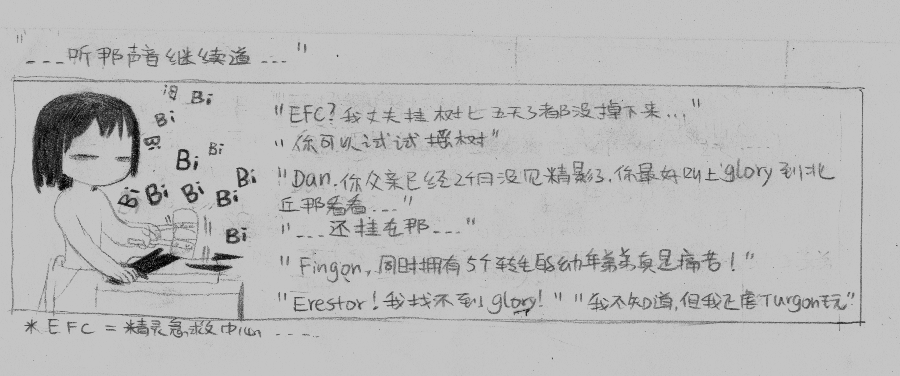 "...听那声音继续道..."
Bi
Bi
Bi
Bi
Bi
Bi
Bi
Bi
Bi
"EFC? 我丈夫挂树上五天了都没掉下来..."
"你可以试试摇树"
"Dan. 你父亲已经2个月没见精影了. 你最好叫上glory到北
丘那看看..."
"...还挂在那..."
"Fingon, 同时拥有5个转生的幼年弟弟真是痛苦!"
"Erestor! 我找不到glory!" "我不知道, 但我正陪Turgon玩"
*EFC = 精灵急救中心 ....